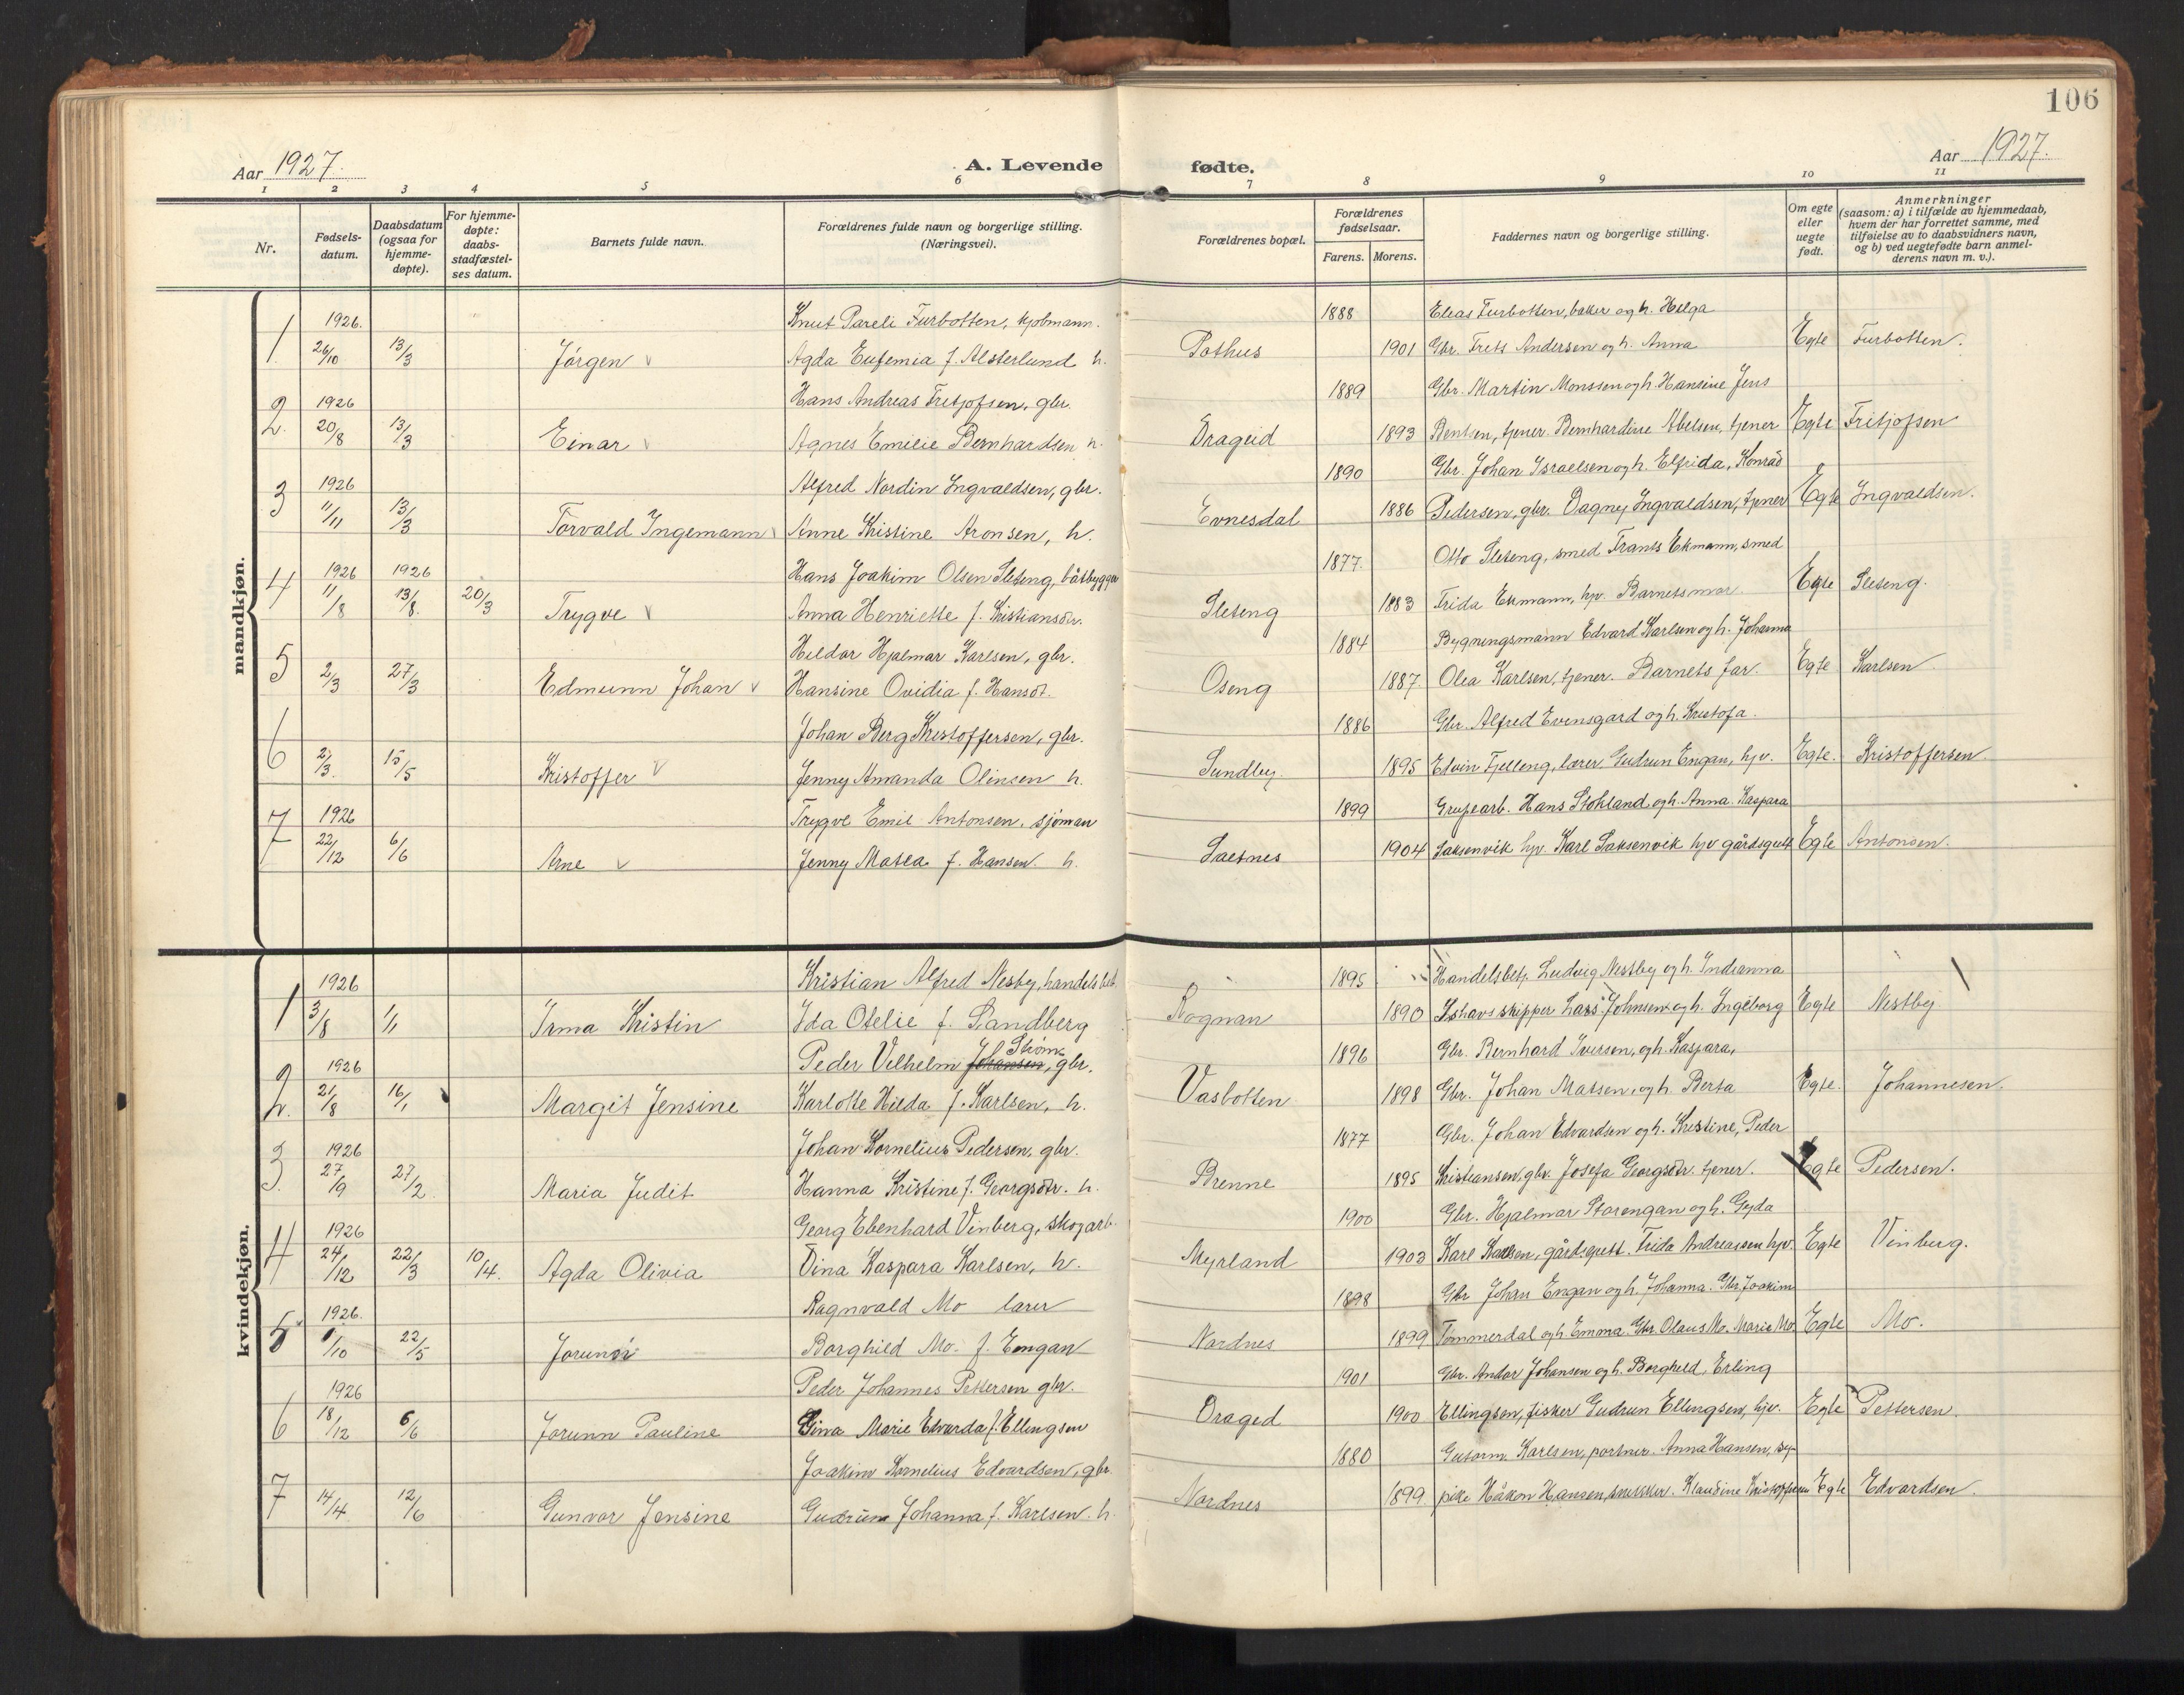 106
Aar 1927.
A. Levende fødte.
Aar 1927.
1 2 3 4 5 6 7 8 9 10 11
Nr.
Fødsels-datum.
Daabsdatum (ogsaa for hjemme-døpte).
For hjemme-døpte: daabs-stadfæstel-ses datum.
Barnets fulde navn.
Forældrenes fulde navn og borgerlige stilling. (Næringsvei).
Forældrenes bopæl.
Forældrenes fødselsaar.
Farens. Morens.
Faddernes navn og borgerlige stilling.
Om egte eller uegte født.
Anmerkninger (saasom: a) i tilfælde av hjemmedaab, hvem der har forrettet samme, med tilføielse av to daabsvidners navn, og b) ved uegtefødte barn anmel-derens navn m. v.).
mandkjøn.
1926. Knut Pareli Furbotten, kjøbmann. 1888 Elias Furbotten, baker og h. Helga
1. 26/10 13/3 Jørgen v Agda Eufemia f. Alsterlund h. Pothus 1901 Gbr. Frets Andersen og h. Anna Egte Furbotten.
1926 Hans Andreas Fritjofsen, gbr. 1889 Gbr. Martin Monssen og h. Hansine Jens
2. 20/8 13/3 Einar v Agnes Emilie Bernhardsen h. Drageid 1893 Bentsen, tjener. Bernhardine Abelsen, tjener Egte Fritjofsen
1926 Alfred Nordin Ingvaldsen, gbr. 1890 Gbr. Johan Israelsen og h. Elfrida, Konrad
3 11/11 13/3 Torvald Ingemann v Anne Kristine Aronsen, h. Evnesdal 1886 Pedersen, gbr. Dagny Ingvaldsen, tjener Egte Ingvaldsen.
1926 1926 Hans Joakim Olsen Sleteng, båtbygger 1877. Otto Sleteng, smed Frants Ekmann, smed
4 11/8 13/8. 20/3 Trygve v Anna Henriette f. Kristiansdtr. Sleteng 1883 Frida Ekmann, hjv. Barnets mor. Egte Sleteng.
Hildor Hjalmar Karlsen, gbr. 1884 Bygningsmann Edvard Karlsen og h. Johanna
5 2/3 27/3 Edmunn Johan v Hansine Ovidia f. Hansdt. Oseng 1887. Olea Karlsen, tjener. Barnets far. Egte Karlsen
Johan Berg Kristoffersen, gbr. 1886 Gbr. Alfred Evensgard og h. Kristofa.
6 2/3. 15/5 Kristoffer v Jenny Amanda Olinsen h. Sundby. 1895 Edvin Fjelleng, lærer, Gudrun Engan, hjv. Egte. Kristoffersen
1926 Trygve Emil Antonsen, sjøman 1899 Grubearb. Hans Stokland og h. Anna. Kaspara
7 22/12 6/6 Arne v Jenny Matea f. Hansen. h. Saetnes 1904 Saksenvik hjv. Karl Saksenvik hjv gårdsgutt Egte Antonsen.
kvindekjøn.
1926 Kristian Alfred Nesby, handelsbet. 1895 Handelsbetj. Ludvig Nestby og h. Indianna
1 3/8 1/1 Irma Kristin Ida Otelie f. Sandberg Rognan 1890 Ishavsskipper Lars Johnsen og h. Ingeborg Egte Nestby
1926 Peder Vilhelm Johansen, gbr. 1896 Gbr. Bernhard Iversen, og h. Kaspara,
2. 21/8 16/1 Margit Jensine Karlotte Hilda f. Karlsen, h. Vasbotten 1898 Gbr. Johan Matsen, og h. Berta Egte. Johannesen.
1926 Johan Kornelius Pedersen, gbr. 1877 Gbr. Johan Edvardsen og h. Kristine, Peder
3. 27/9 27/2 Maria Judit Hanna Kristine f. Georgsdtr. h. Brenne 1895 Kristiansen, gbr. Josefa Georgsdtr. tjener. Egte Pedersen.
1926 Georg Ebenhard Vinberg, skogarb. 1900 Gbr. Hjalmar Storengan og h. Gyda
4 24/12 22/3 10/4. Agda Olivia Dina Kaspara Karlsen, h. Myrland 1903 Karl Karlsen, gårdsgutt. Frida Andreassen hjv. Egte Vinberg.
1926. Ragnvald Mo lærer 1898 Gbr Johan Engan og h. Johanna. Gbr. Joakim
5 1/10 22/5 Jorunn Borghild Mo. f. Engan Nordnes 1899 Tømmerdal og h. Emma. Gbr. Olaus Mo. Marie Mo Egte Mo.
1926 Peder Johannes Pettersen gbr. 1901 Gbr. Andor Johansen og h. Borghild, Erling
6 18/12 6/6 Jorunn Pauline Lina Marie Edvarda f. Ellingsen Draged 1900 Ellingsen, fisker Gudrun Ellingsen, hjv. Egte Pettersen.
Joakim Kornelius Edvardsen, gbr. 1880 Gutorm Karlsen, portner. Anna Hansen, sy-
7 14/4 12/6 Gunvor Jensine Gudrun Johanna f. Karlsen. h. Nordnes 1899. pike Håkon Hansen, snekker. Klaudine Kristoffersen Egte Edvardsen.